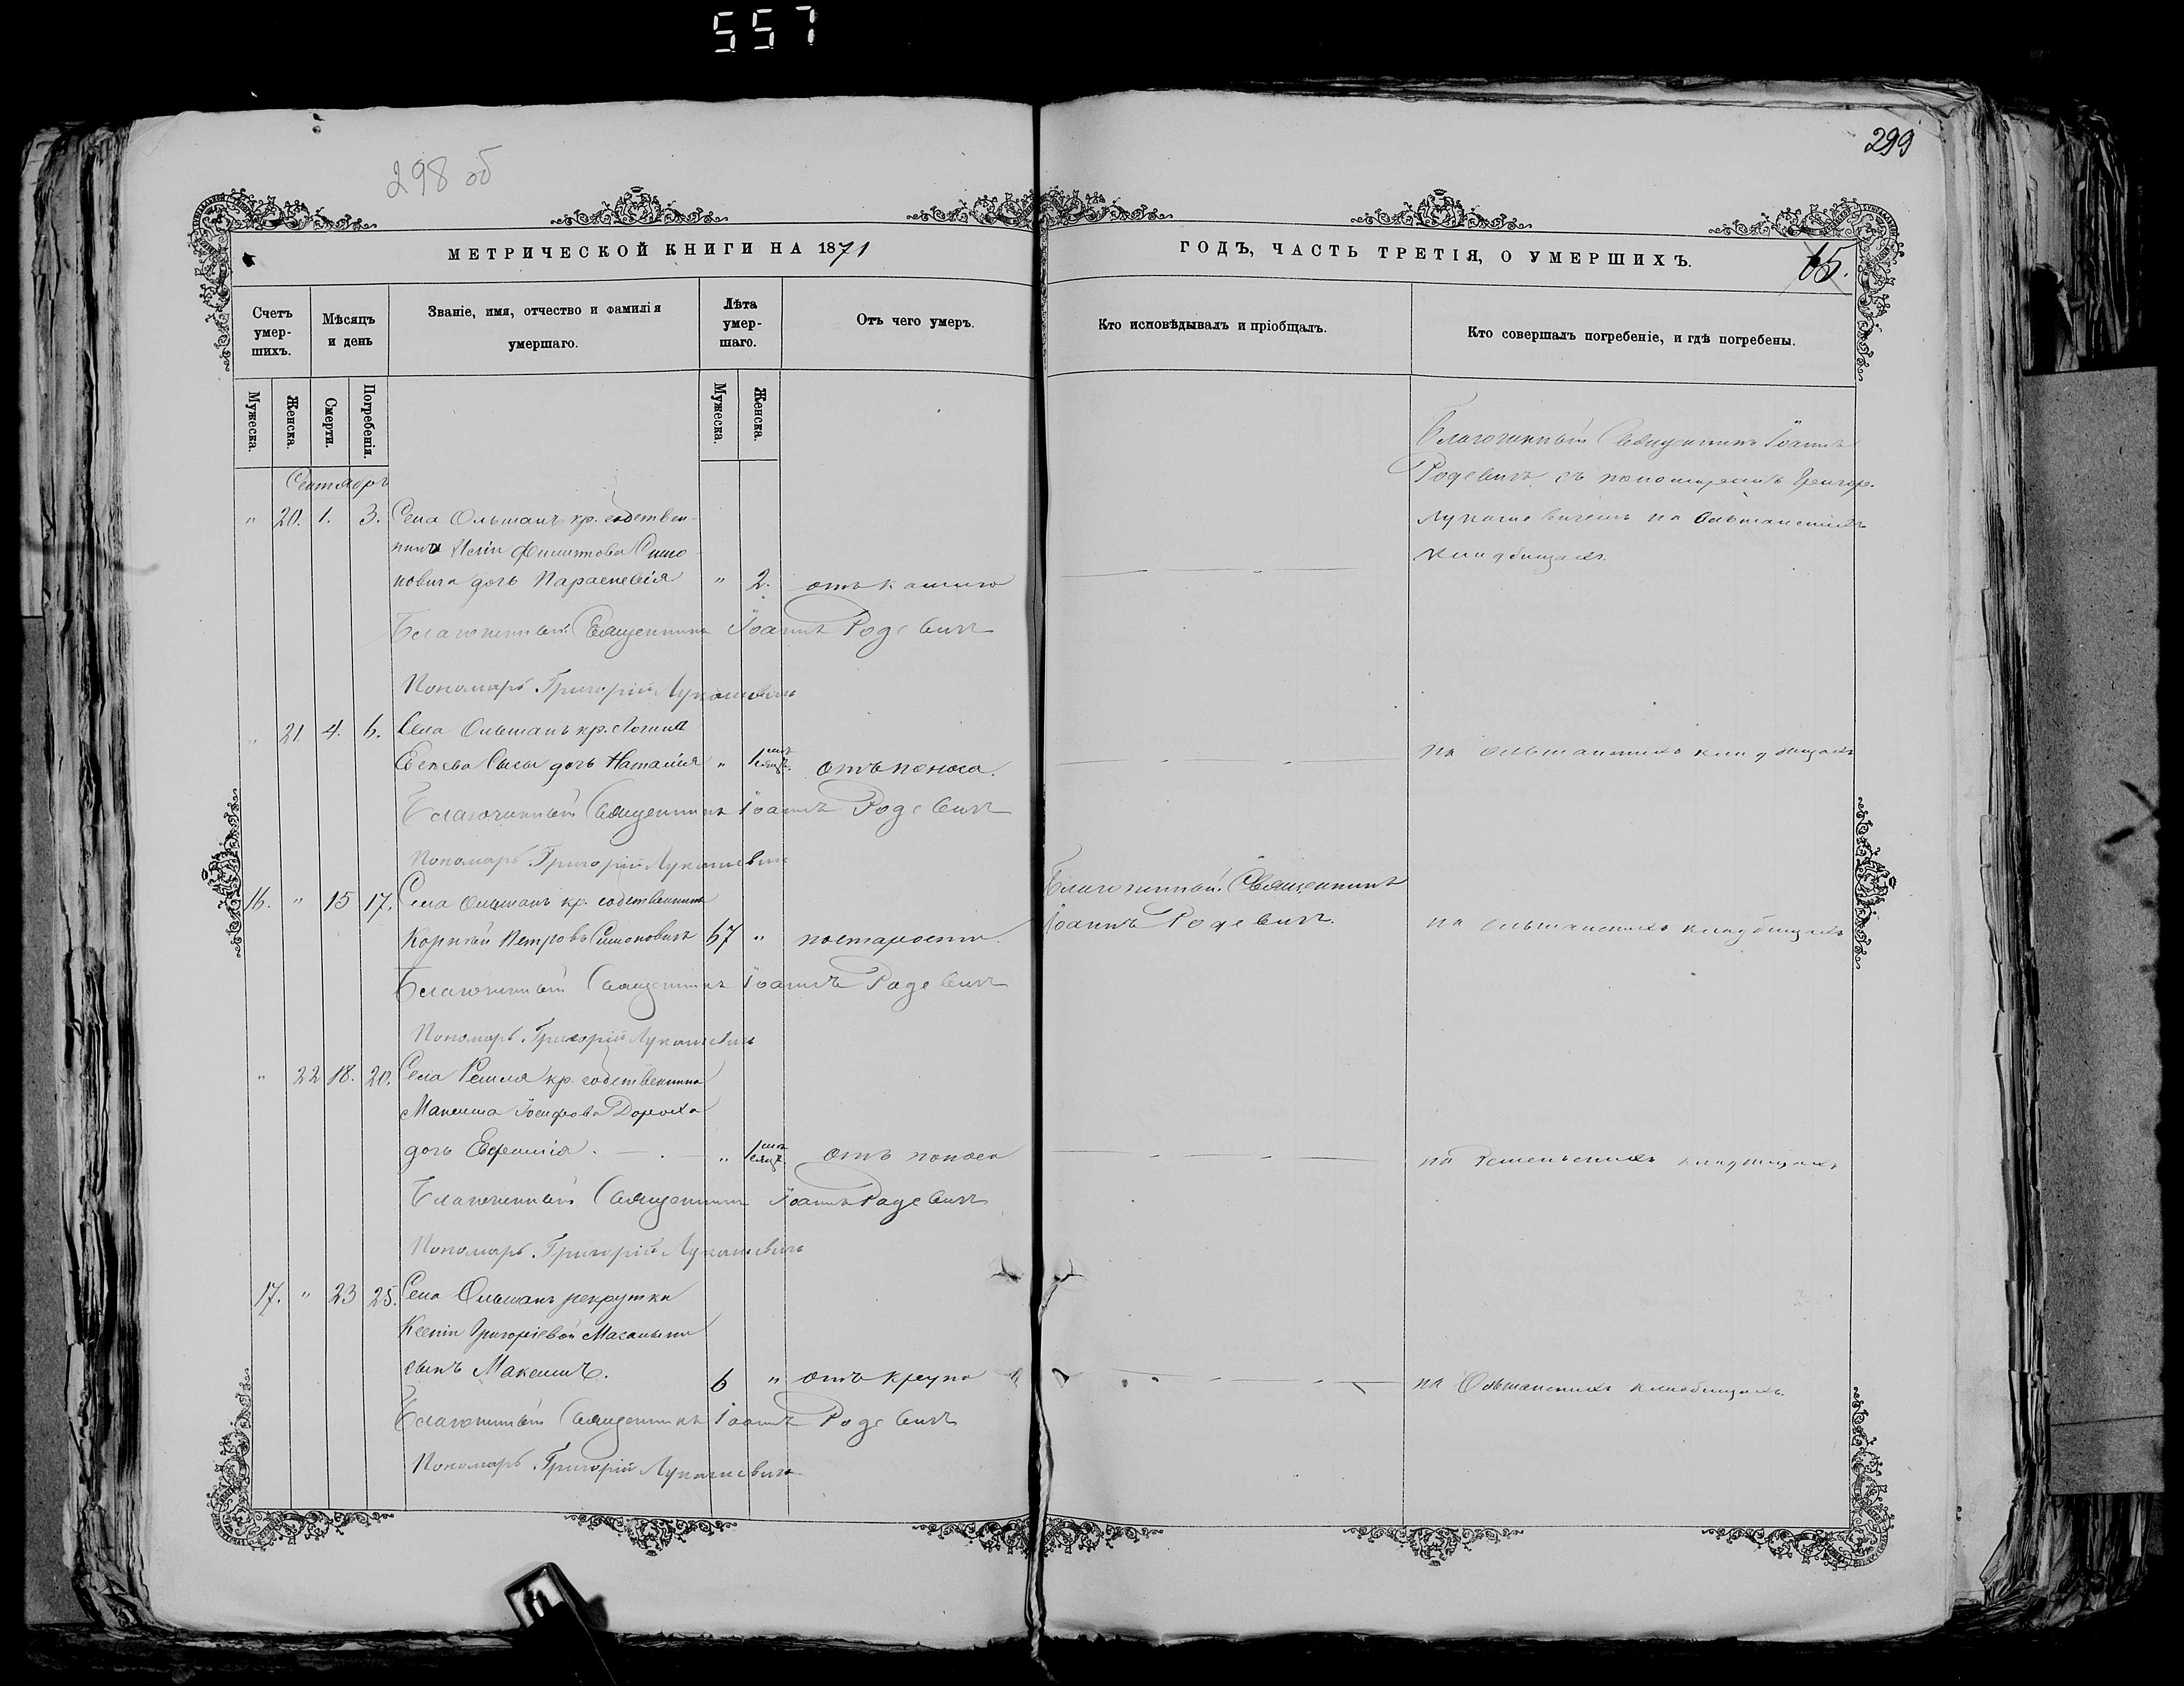 557
298 об
299
МЕТРИЧЕСКОЙ КНИГИ НА 1871
ГОДЪ, ЧАСТЬ ТРЕТІЯ, О УМЕРШИХЪ.
65.
Счетъ умер-шихъ.
Мѣсяцъ и день
Званіе, имя, отчество и фамилія умершаго.
Лѣта умер-шаго.
Отъ чего умеръ.
Кто исповѣдывалъ и пріобщалъ.
Кто совершалъ погребеніе, и гдѣ погребены.
Мужеска.
Женска.
Смерти.
Погребенія.
Мужеска.
Женска.
Сентябрь
Благочинный Священникъ Іоаннъ
Родевичъ съ пономаремъ Григор.
Лукашевичемъ на Ольшанскихъ
кладбищахъ.
" 20. 1. 3. Села Ольшанъ кр. собствен-
ника Филиппова Симо
новича дочь Параскевія " 2. отъ кашлю
Благочинный Священникъ Іоаннъ Родевичъ
Пономарь Григорій Лукашевичъ
" 21 4. 6. Села Ольшанъ кр. Логина
дочь Наталія " 1 мѣсяцъ. отъ поноса.
на Ольшанскихъ кладбищахъ
Благочинный Священникъ Іоаннъ Родевичъ
Пономарь Григорій Лукашевичъ
16. " 15 17. Села Ольшанъ кр. собственникъ
Корнилій Петровъ Симоновичъ 67 " по старости.
Благочинный Священникъ
Іоаннъ Родевичъ.
на Ольшанскихъ кладбищахъ
Благочинный Священникъ Іоаннъ Родевичъ
Пономарь Григорій Лукашевичъ
" 22 18. 20. Села Ремля кр. собственника
Максима Іосифова Дороха
дочь Евфимія. " 1 мѣсяцъ. отъ поноса
на кладбищахъ
Благочинный Священникъ Іоаннъ Родевичъ
Пономарь Григорій Лукашевичъ
17. " 23 25. Села Ольшанъ рекрутки
Ксеніи Григоріевой
сынъ Максимъ. 6 " отъ крупа
на Ольшанскихъ кладбищахъ.
Благочинный Священникъ Іоаннъ Родевичъ
Пономарь Григорій Лукашевичъ